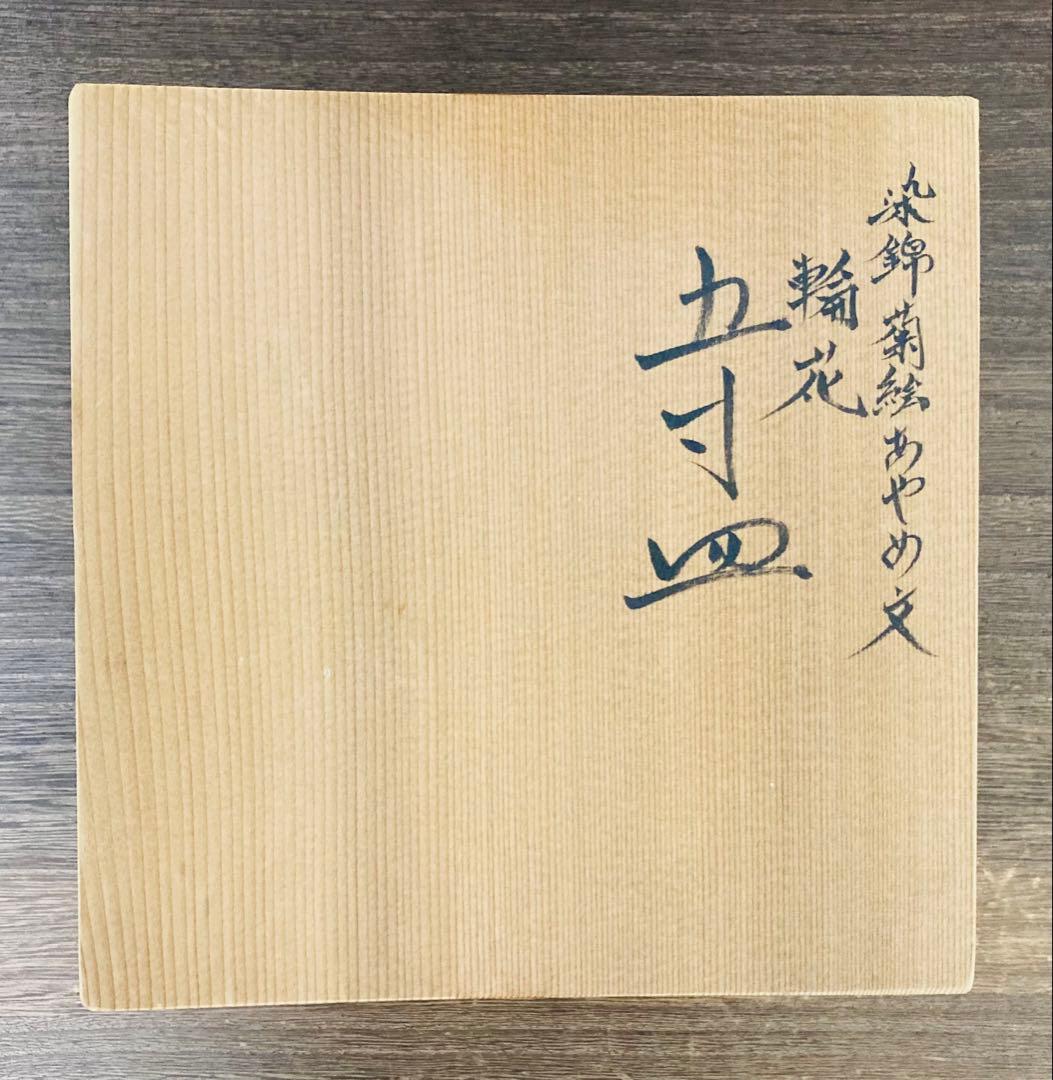 染錦菊絵あやめ文
輪花
五寸皿